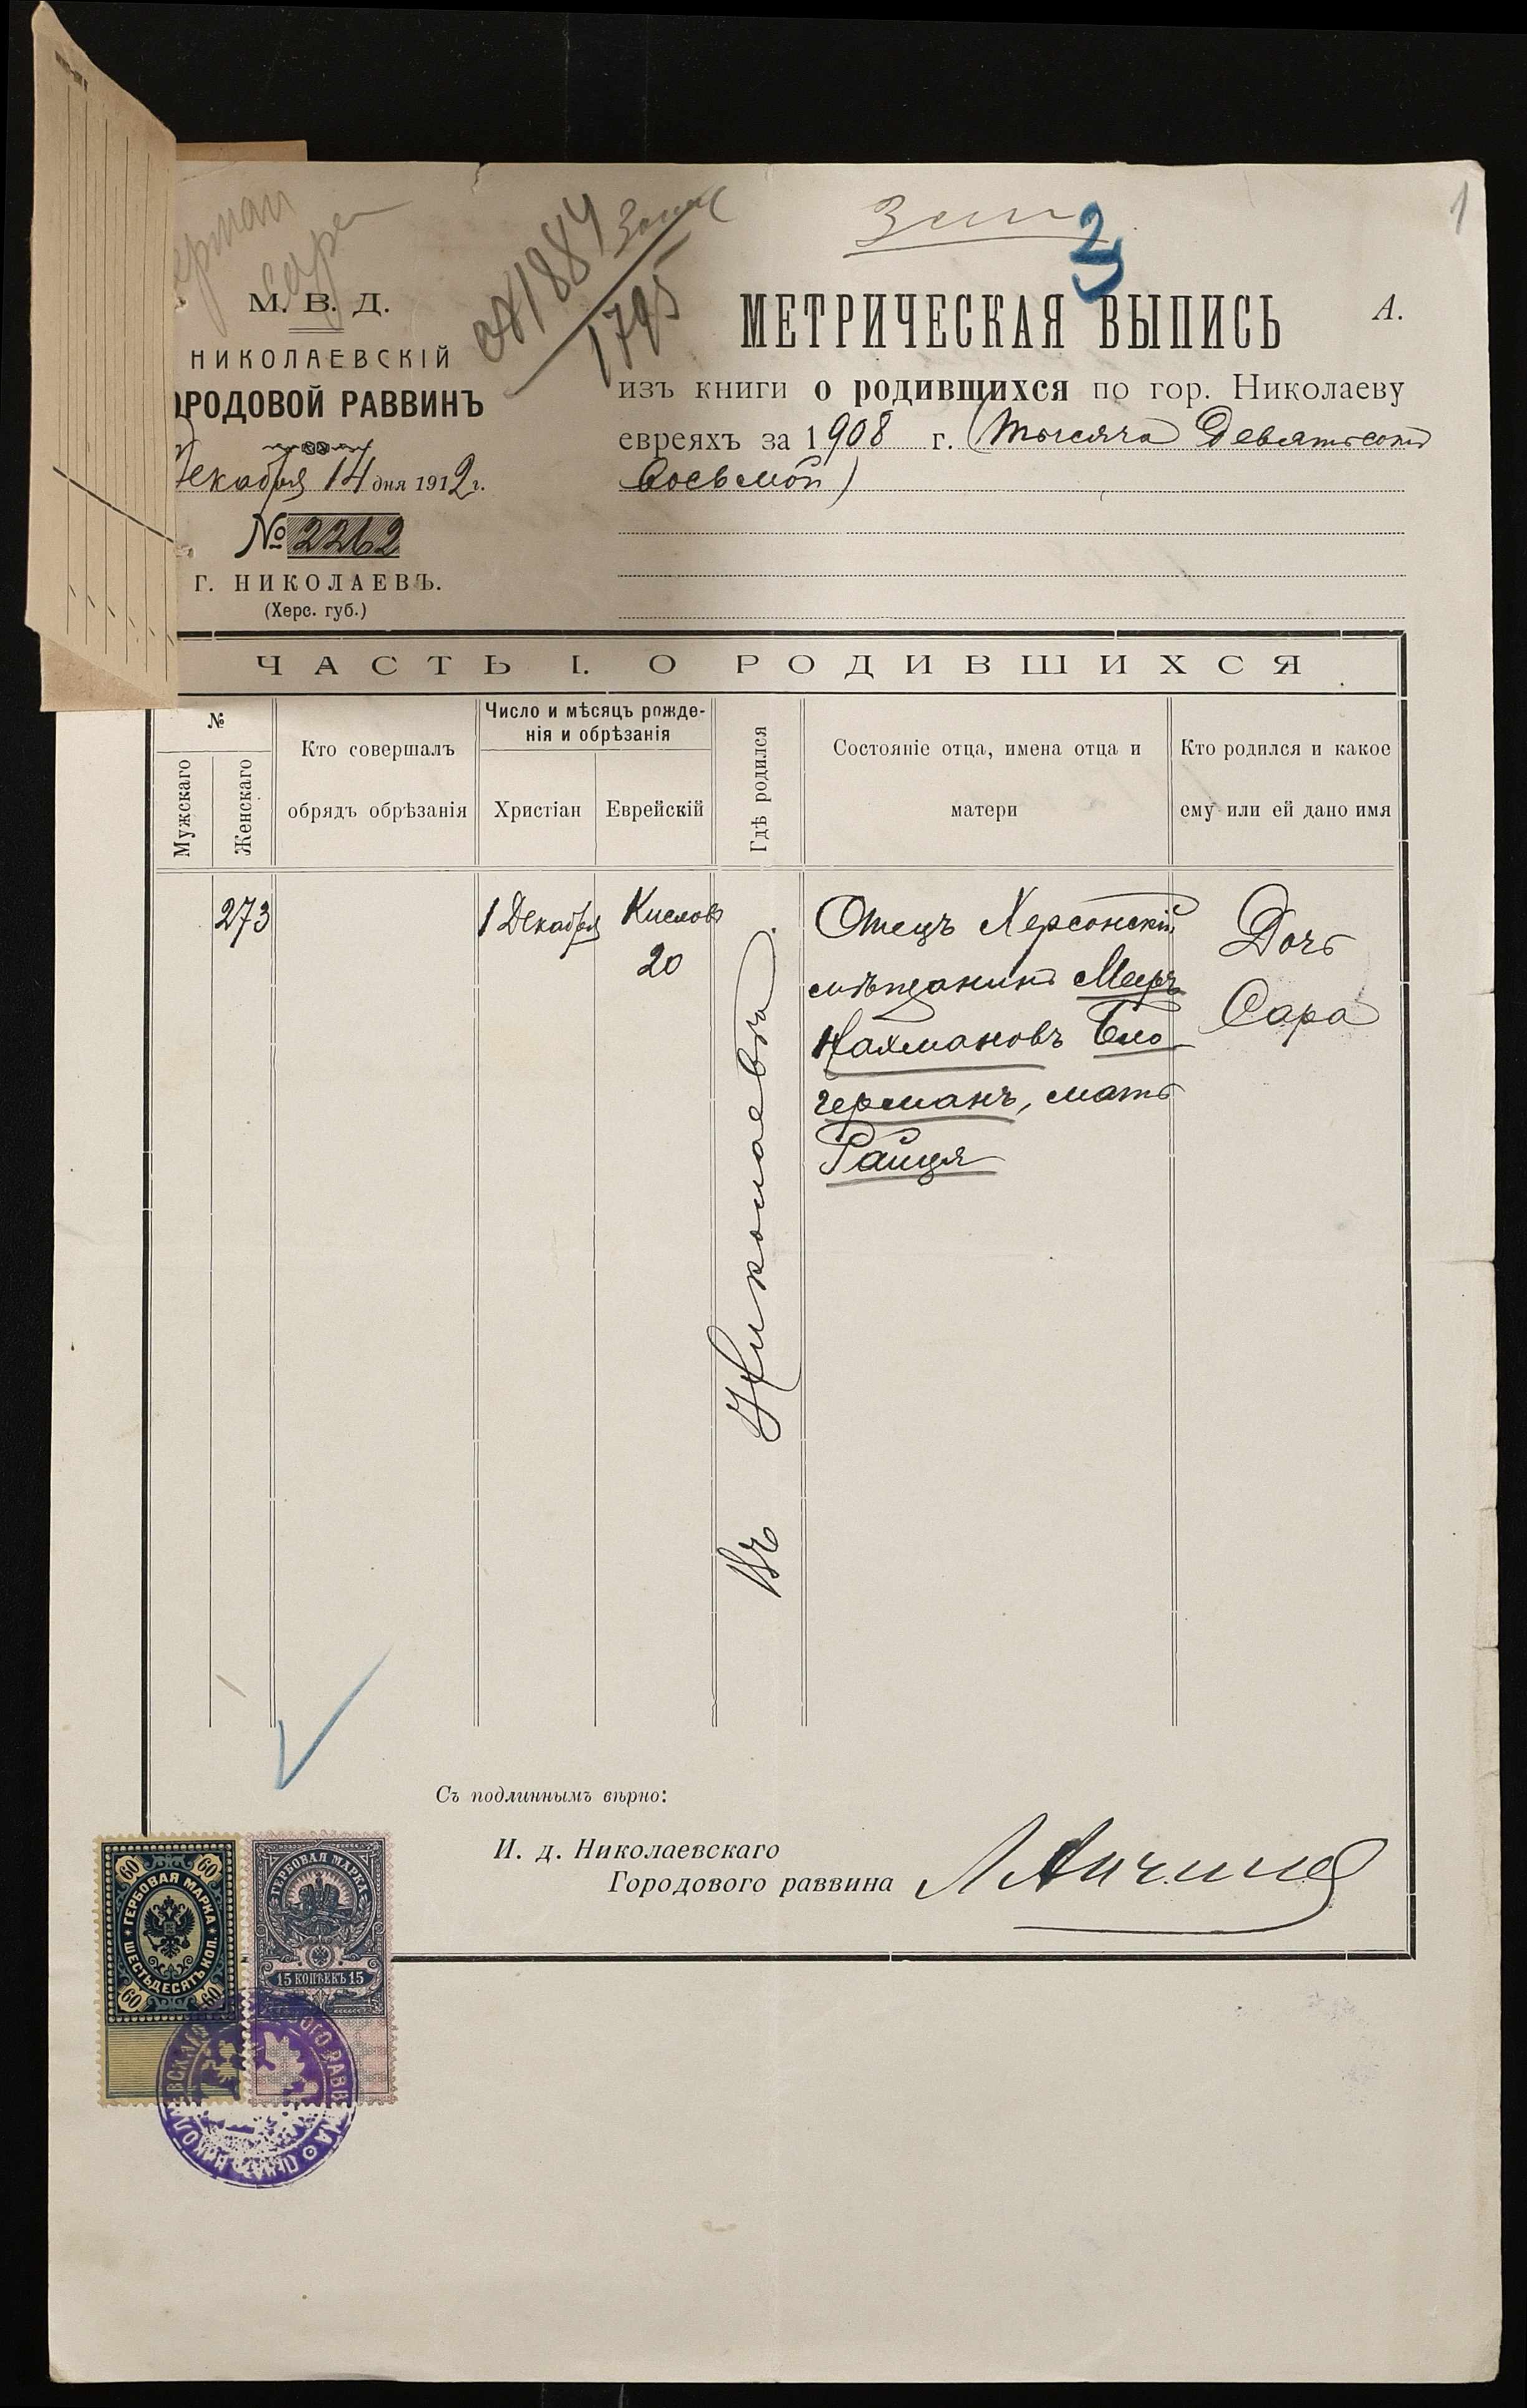 1
М. В. Д.
НИКОЛАЕВСКІЙ
ОРОДОВОЙ РАВВИНЪ
Декабря 14 дня 1912 г.
№ 2262
Г. НИКОЛАЕВЪ.
(Херс. губ.)
1884
1795
3
МЕТРИЧЕСКАЯ ВЫПИСЬ
А.
изъ книги о родившихся по гор. Николаеву
евреяхъ за 1908 г. (тысяча девятьсотъ
восьмой)
ЧАСТЬ I. О РОДИВШИХСЯ
№
Мужскаго
Женскаго
Кто совершалъ
обрядъ обрѣзанія
Число и мѣсяцъ рожде-
нія и обрѣзанія
Христіан
Еврейскій
Гдѣ родился
Состояніе отца, имена отца и
матери
Кто родился и какое
ему или ей дано имя
273
1 Декабря
Кислов
20
Въ Николаевѣ
Отецъ Херсонскій
мѣщанинъ Мееръ
Нахмановъ Бло
германъ, мать
Раиця
Дочь
Сара
Съ подлиннымъ вѣрно:
И. д. Николаевскаго
Городового раввина
60 60
ГЕРБОВАЯ МАРКА
ШЕСТЬДЕСЯТЪ КОП.
60 60
ГЕРБОВАЯ МАРКА
15 КОПѢЕКЪ 15